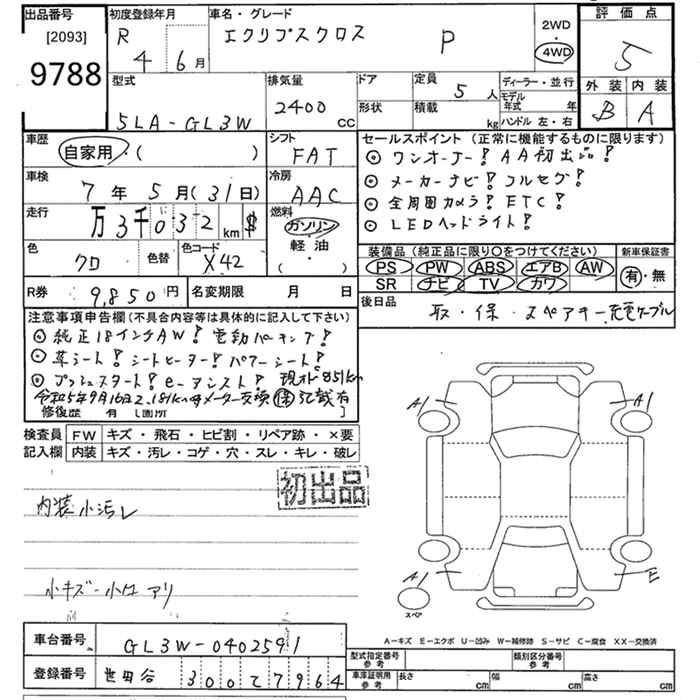 出品番号 初度登録年月 車名・グレード 2WD 評価点
[2093] R エクリプスクロス P 4WD 5
9788 4 6月
型式 排気量 ドア 定員 5人 ディーラー・並行 外装 内装
5LA-GL3W 2400cc 形状 積載 kg モデル年式 年 B A
ハンドル 左・右
車歴 シフト セールスポイント(正常に機能するものに限ります)
自家用・( ) FAT ◎ ワンオーナー! AA初出品!
車検 冷房 ◎ メーカーナビ! フルセグ!
7年5月(31日) AAC ◎ 全周囲カメラ! ETC!
走行 燃料 ◎ LEDヘッドライト!
万3千032km ガソリン
軽・油
( )
色 色替 色コード 装備品(純正品に限り○をつけてください) 新車保証書
クロ X42 PS PW ABS エアB AW 有・無
SR ナビ TV カワ
R券 9,850円 名変期限 月 日 後日品
取・保・スペアキー・充電ケーブル
注意事項申告欄(不具合内容等は具体的に記入して下さい)
◎ 純正18インチAW! 電動パーキング!
◎ 革シート! シートヒーター! パワーシート!
◎ プッシュスタート! e-アシスト! 現オド851km
令和5年9月16日2,181km時メーター交換 記載有
修復歴 有 [箇所 ]
検査員 FW キズ・飛石・ヒビ割・リペア跡・×要
記入欄 内装 キズ・汚レ・コゲ・穴・スレ・キレ・破レ
初出品
内装小汚レ
小キズ・小凹アリ
A1 A1
A1 E
スペア
A-キズ E-エクボ U-凹み W-補修跡 S-サビ C-腐食 XX-交換済
車台番号 GL3W-0402591
型式指定番号 参考 類別区分番号 参考
登録番号 世田谷 300 て 7964
車庫証明用 参考 長さ cm 幅 cm 高さ cm